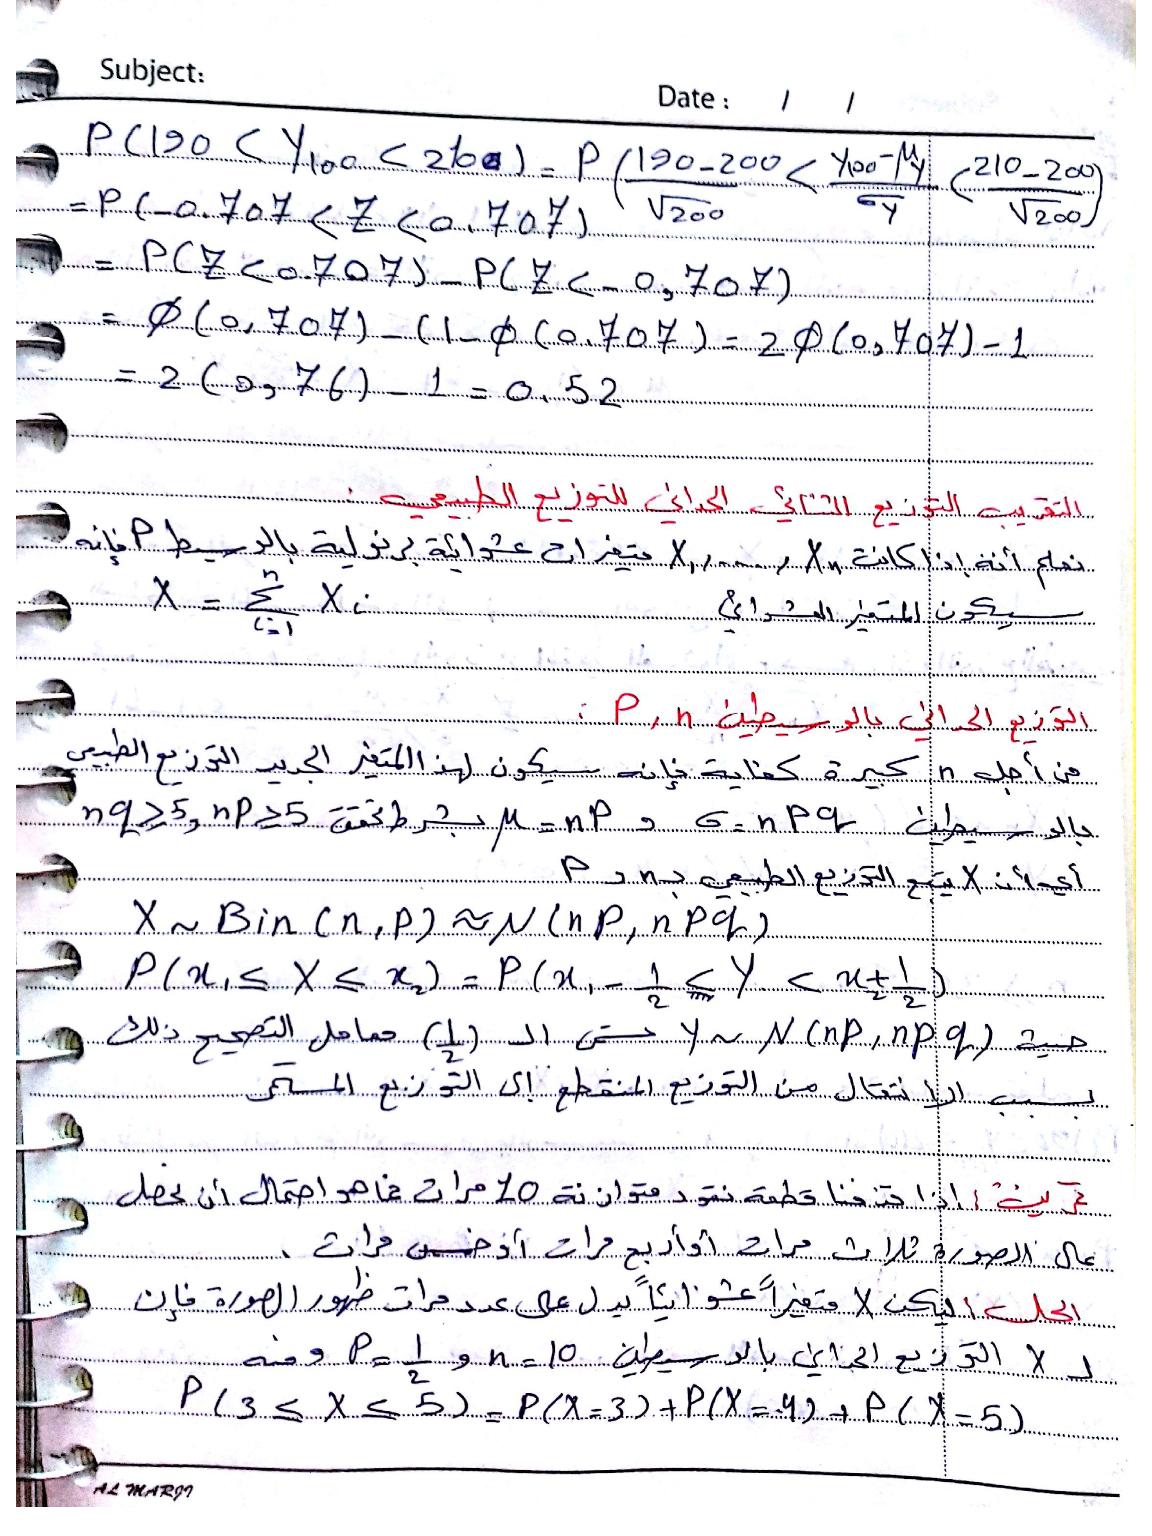 Subject:
Date : / /
P(190 < Y100 < 210) = P(190-200/√200 < Y100-μy/σy < 210-200/√200)
= P(-0.707 < Z < 0.707)
= P(Z < 0.707) - P(Z < -0,707)
= Ø(0,707) - (1-Ø(0.707) = 2Ø(0,707)-1
= 2(0,76) - 1 = 0.52
التقريب التوزيع الثنائي الحداني للتوزيع الطبيعي .
نعلم أنه إذا كانت X1, ...., Xn متغيرات عشوائية برنولية بالوسيط P فإنه
سيكون المتغير العشوائي X = Σ(i=1→n) Xi
التوزيع الحداني بالوسيطين P, n :
من أجل n كبيرة كفاية فإنه سيكون لهذا المتغير الجديد التوزيع الطبيعي
بالوسيطين σ=npq و μ=np بشرط تحقق nq≥5, np≥5
أي أن X يتبع التوزيع الطبيعي بـ n و P
X ~ Bin (n,p) ≈ N (np, npq)
P(x1 ≤ X ≤ x2) = P(x1 - 1/2 ≤ Y < x2 + 1/2)
حيث Y ~ N (np, npq) الـ (1/2) معامل التصحيح ذلك
بسبب الانتقال من التوزيع المنقطع إلى التوزيع المستمر
تمرين : إذا قذفنا قطعة نقود متوازنة 10 مرات فما هو احتمال أن نحصل
على الصورة ثلاث مرات أو أربع مرات أو خمس مرات .
الحل : ليكن X متغيراً عشوائياً يدل على عدد مرات ظهور الصورة فإن
لـ X التوزيع الحداني بالوسيطين n=10 و P=1/2 ومنه
P(3 ≤ X ≤ 5) = P(X=3)+P(X=4)+P(X=5)
AL MARJI